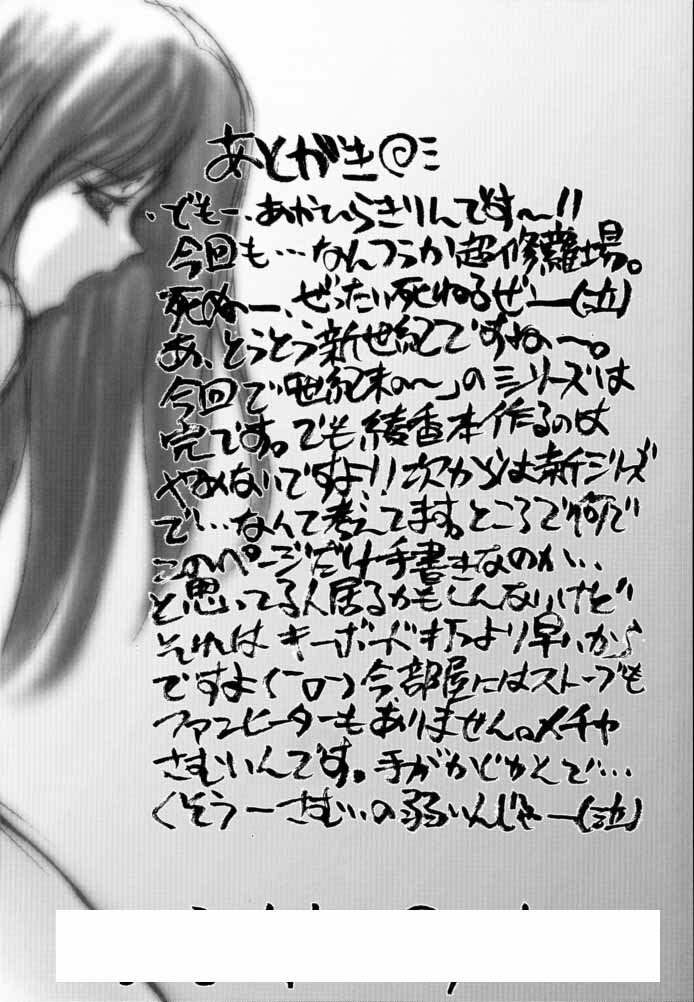 あとがき@ミ
・でもー、あかひらきりんです〜!!
今回も…なんつうか超修羅場。
死ぬー、ぜったい死ねるぜー(泣)
あ、とうとう新世紀ですねー。
今回で「世紀末の〜」のシリーズは
完です。でも綾香本作るのは
やめないですよ!!次からは新シリーズ
で…なんて考えてます。ところで何で
このページだけ手書きなのか…
と思いてる人居るかもしんないけど
それはキーボード打つより早いから
ですよ(ーロー)今部屋にはストーブも
ファンヒーターもありません。メチャ
さむいんです。手がかじかんで…
くそうーさむいの弱いんじゃー(泣)